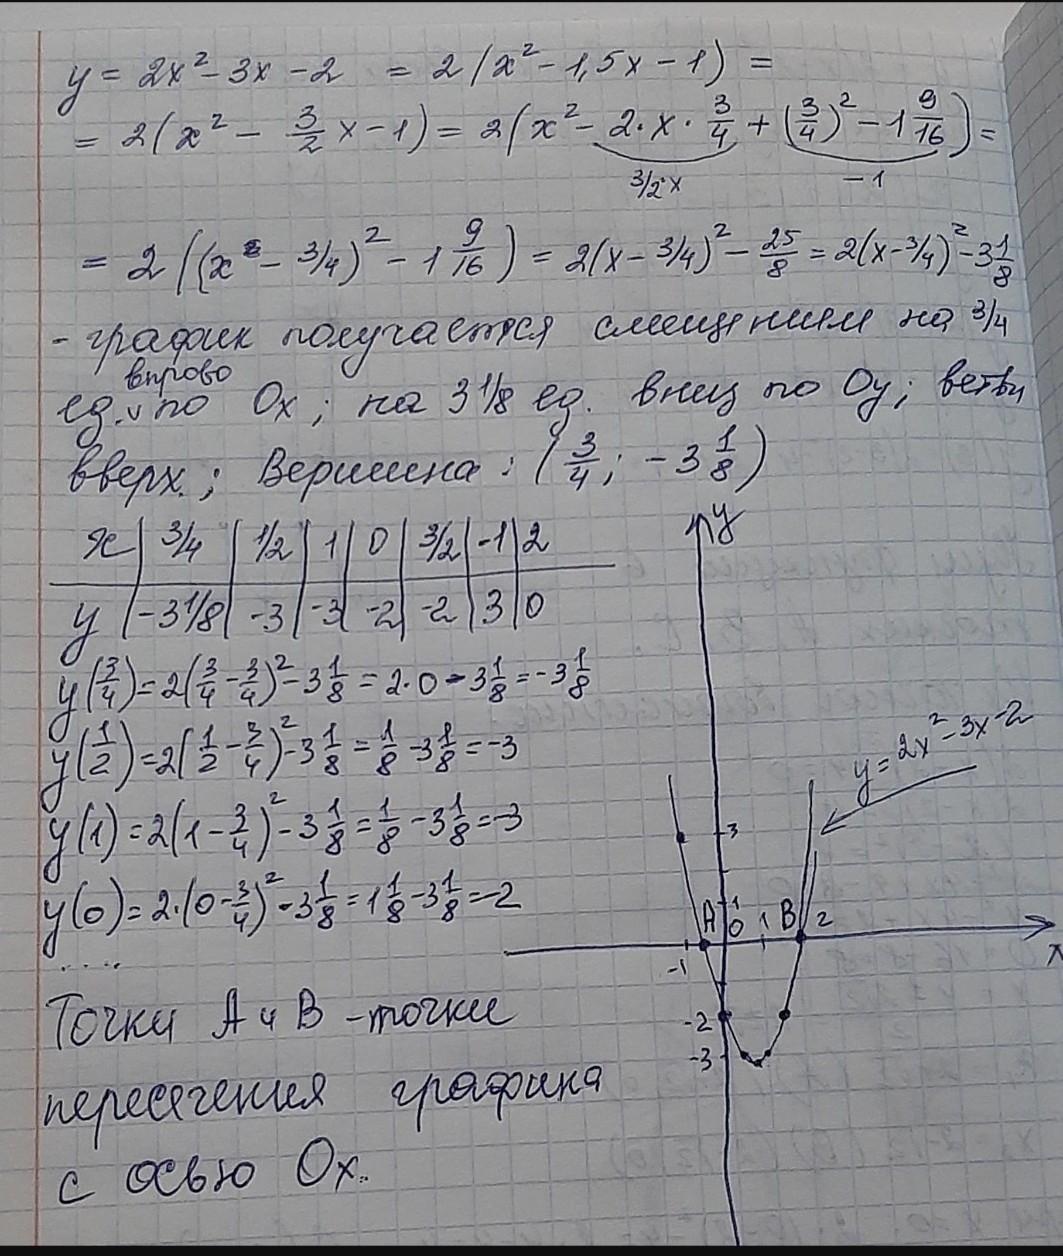 y = 2x² - 3x - 2 = 2(x² - 1,5x - 1) =
= 2(x² - 3/2 x - 1) = 2(x² - 2·x·3/4 + (3/4)² - 1 9/16) =
3/2·x - 1
= 2((x - 3/4)² - 1 9/16) = 2(x - 3/4)² - 25/8 = 2(x - 3/4)² - 3 1/8
- график получается смещением на 3/4
вправо
ед. v по Ox; на 3 1/8 ед. вниз по Oy; ветви
вверх.; Вершина: (3/4; -3 1/8)
x | 3/4 | 1/2 | 1 | 0 | 3/2 | -1 | 2
y | -3 1/8 | -3 | -3 | -2 | -2 | 3 | 0
y(3/4) = 2(3/4 - 3/4)² - 3 1/8 = 2·0 - 3 1/8 = -3 1/8
y(1/2) = 2(1/2 - 3/4)² - 3 1/8 = 1/8 - 3 1/8 = -3
y(1) = 2(1 - 3/4)² - 3 1/8 = 1/8 - 3 1/8 = -3
y(0) = 2·(0 - 3/4)² - 3 1/8 = 1 1/8 - 3 1/8 = -2
.....
Точки A и B - точки
пересечения графика
с осью Ox.
y
y = 2x² - 3x - 2
3
1
A 0 1 B 2
x
-1
-2
-3